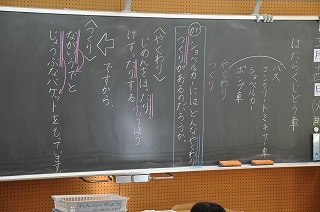 はたらくじどう車
バス
コンクリートミキサー車
ショベルカー
ポンプ車
やくわり
つくり
ショベルカーにはどんなやくわり
つくりがあるのだろうか。
〈やくわり〉
じめんをほったり
けずったりする
ですから、
〈つくり〉
ながいうでと
じょうぶなバケットをもっています。